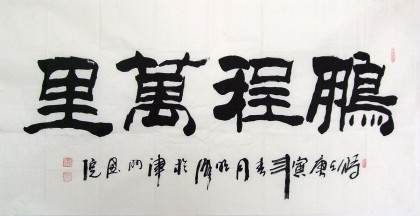 鵬程萬里
時在庚寅年春月於津門院